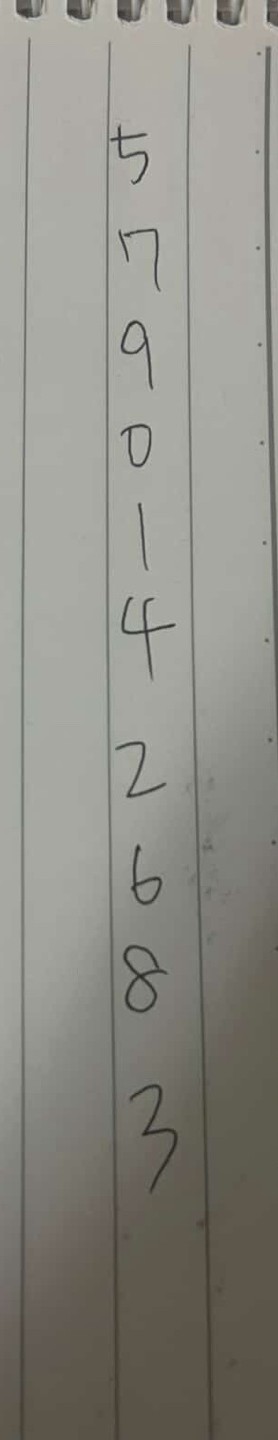 5
7
9
0
1
4
2
6
8
3